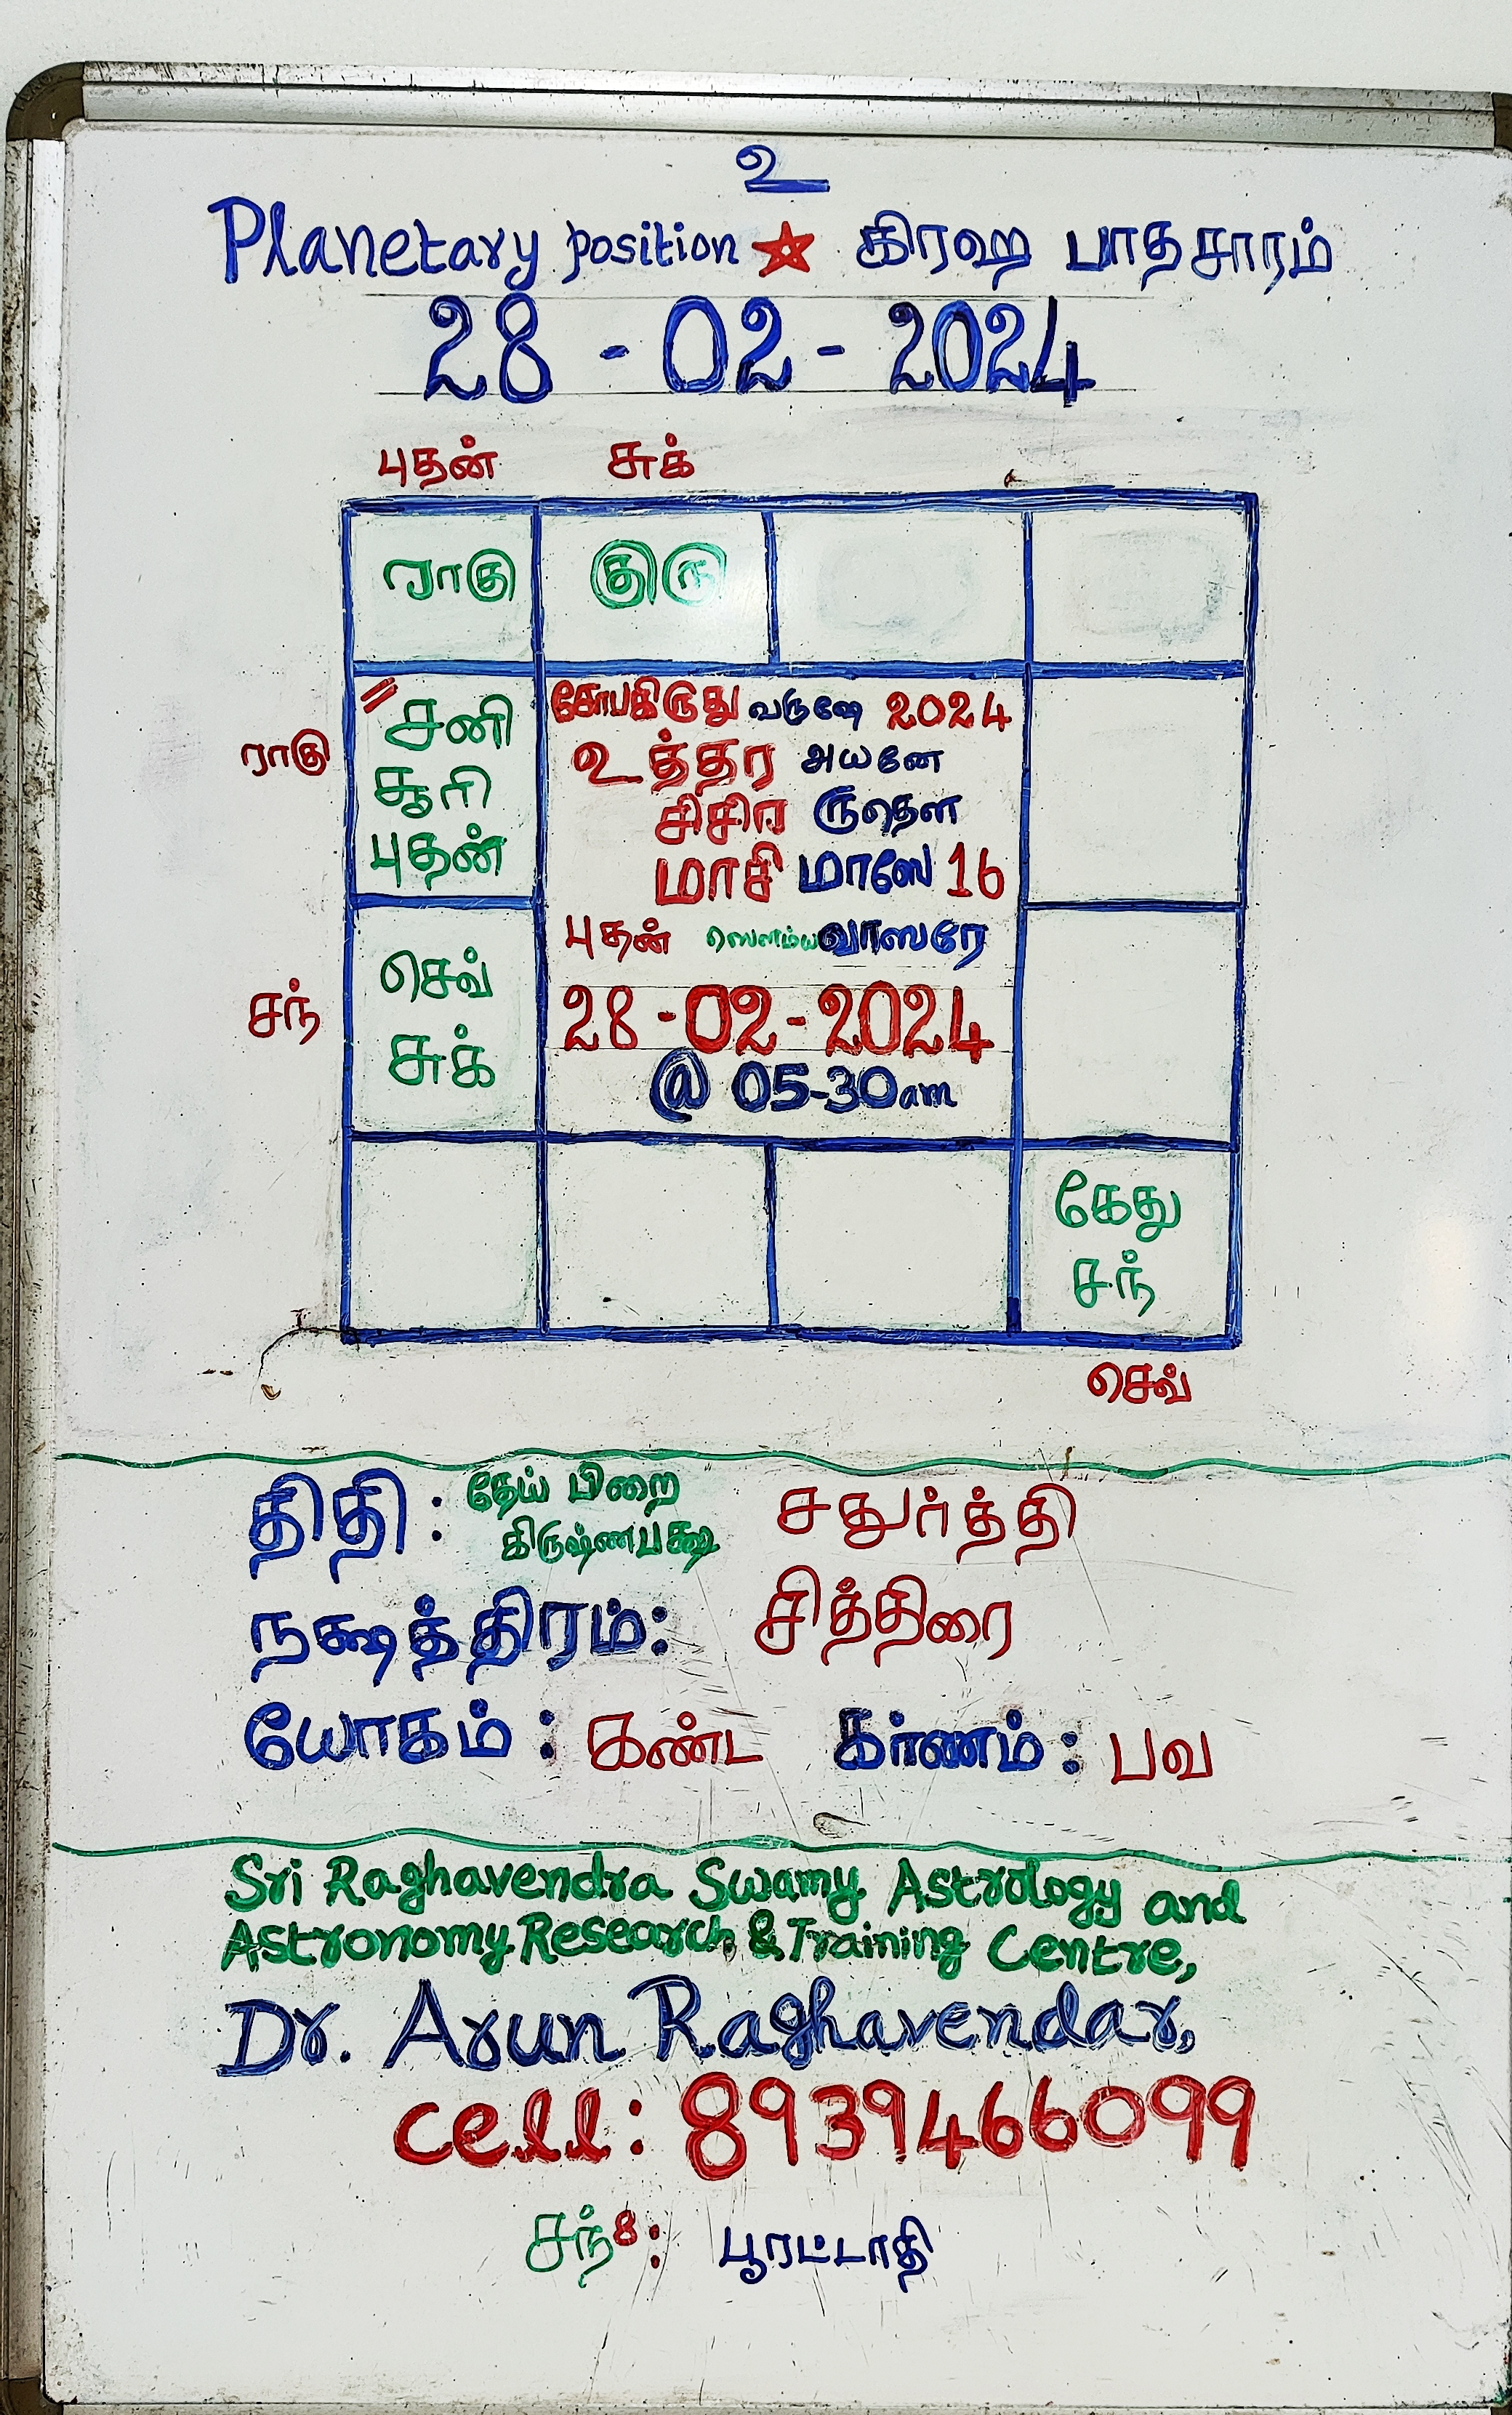 உ
Planetary position ☆ கிரஹ பாதசாரம்
28 - 02 - 2024
புதன் சுக்
ராகு குரு
சோபகிருது வருஷே 2024
சனி
உத்தர அயனே
ராகு
சூரி
சிசிர ருதௌ
புதன்
மாசி மாஸே 16
புதன் ஸௌம்ய வாஸரே
செவ்
சந்
28 -02- 2024
சுக்
@ 05-30am
கேது
சந்
செவ்
திதி : தேய் பிறை சதுர்த்தி
கிருஷ்ணபக்ஷ
நக்ஷத்திரம்: சித்திரை
யோகம் : கண்ட கர்ணம் : பவ
Sri Raghavendra Swamy Astrology and
Astronomy Research & Training Centre,
Dr. Arun Raghavendar,
cell: 8939466099
சந்8: பூரட்டாதி